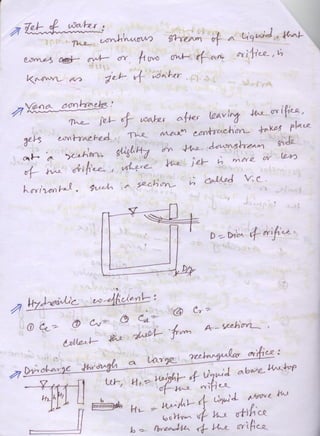 Jet of water:
The continuous stream of a liquid, that
comes out or flows out of an orifice, is
known as Jet of water.
Vena contracta:
The jet of water after leaving the orifice,
gets contracted. The max^m contraction takes place
at a section slightly on the downstream side
of the orifice, where the jet is more or less
horizontal. Such a section is called V.C.
D = Dia of orifice.
Hydraulic co-efficient:
① Cc = ② Cv = ③ Cd = ④ Cr =
Collect the sheet from A-section.
Discharge through a large rectangular orifice:
Let, H₁ = Height of liquid above the top
of the orifice
H₂ = Height of liquid above the
bottom of the orifice
b = Breadth of the orifice